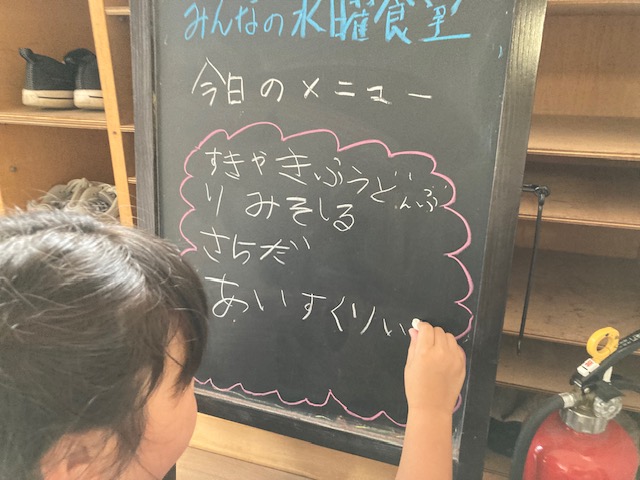 みんなの水曜食堂
今日のメニュー
すきやきふうどんぶ
り みそしる
さらだ
あいすくりい